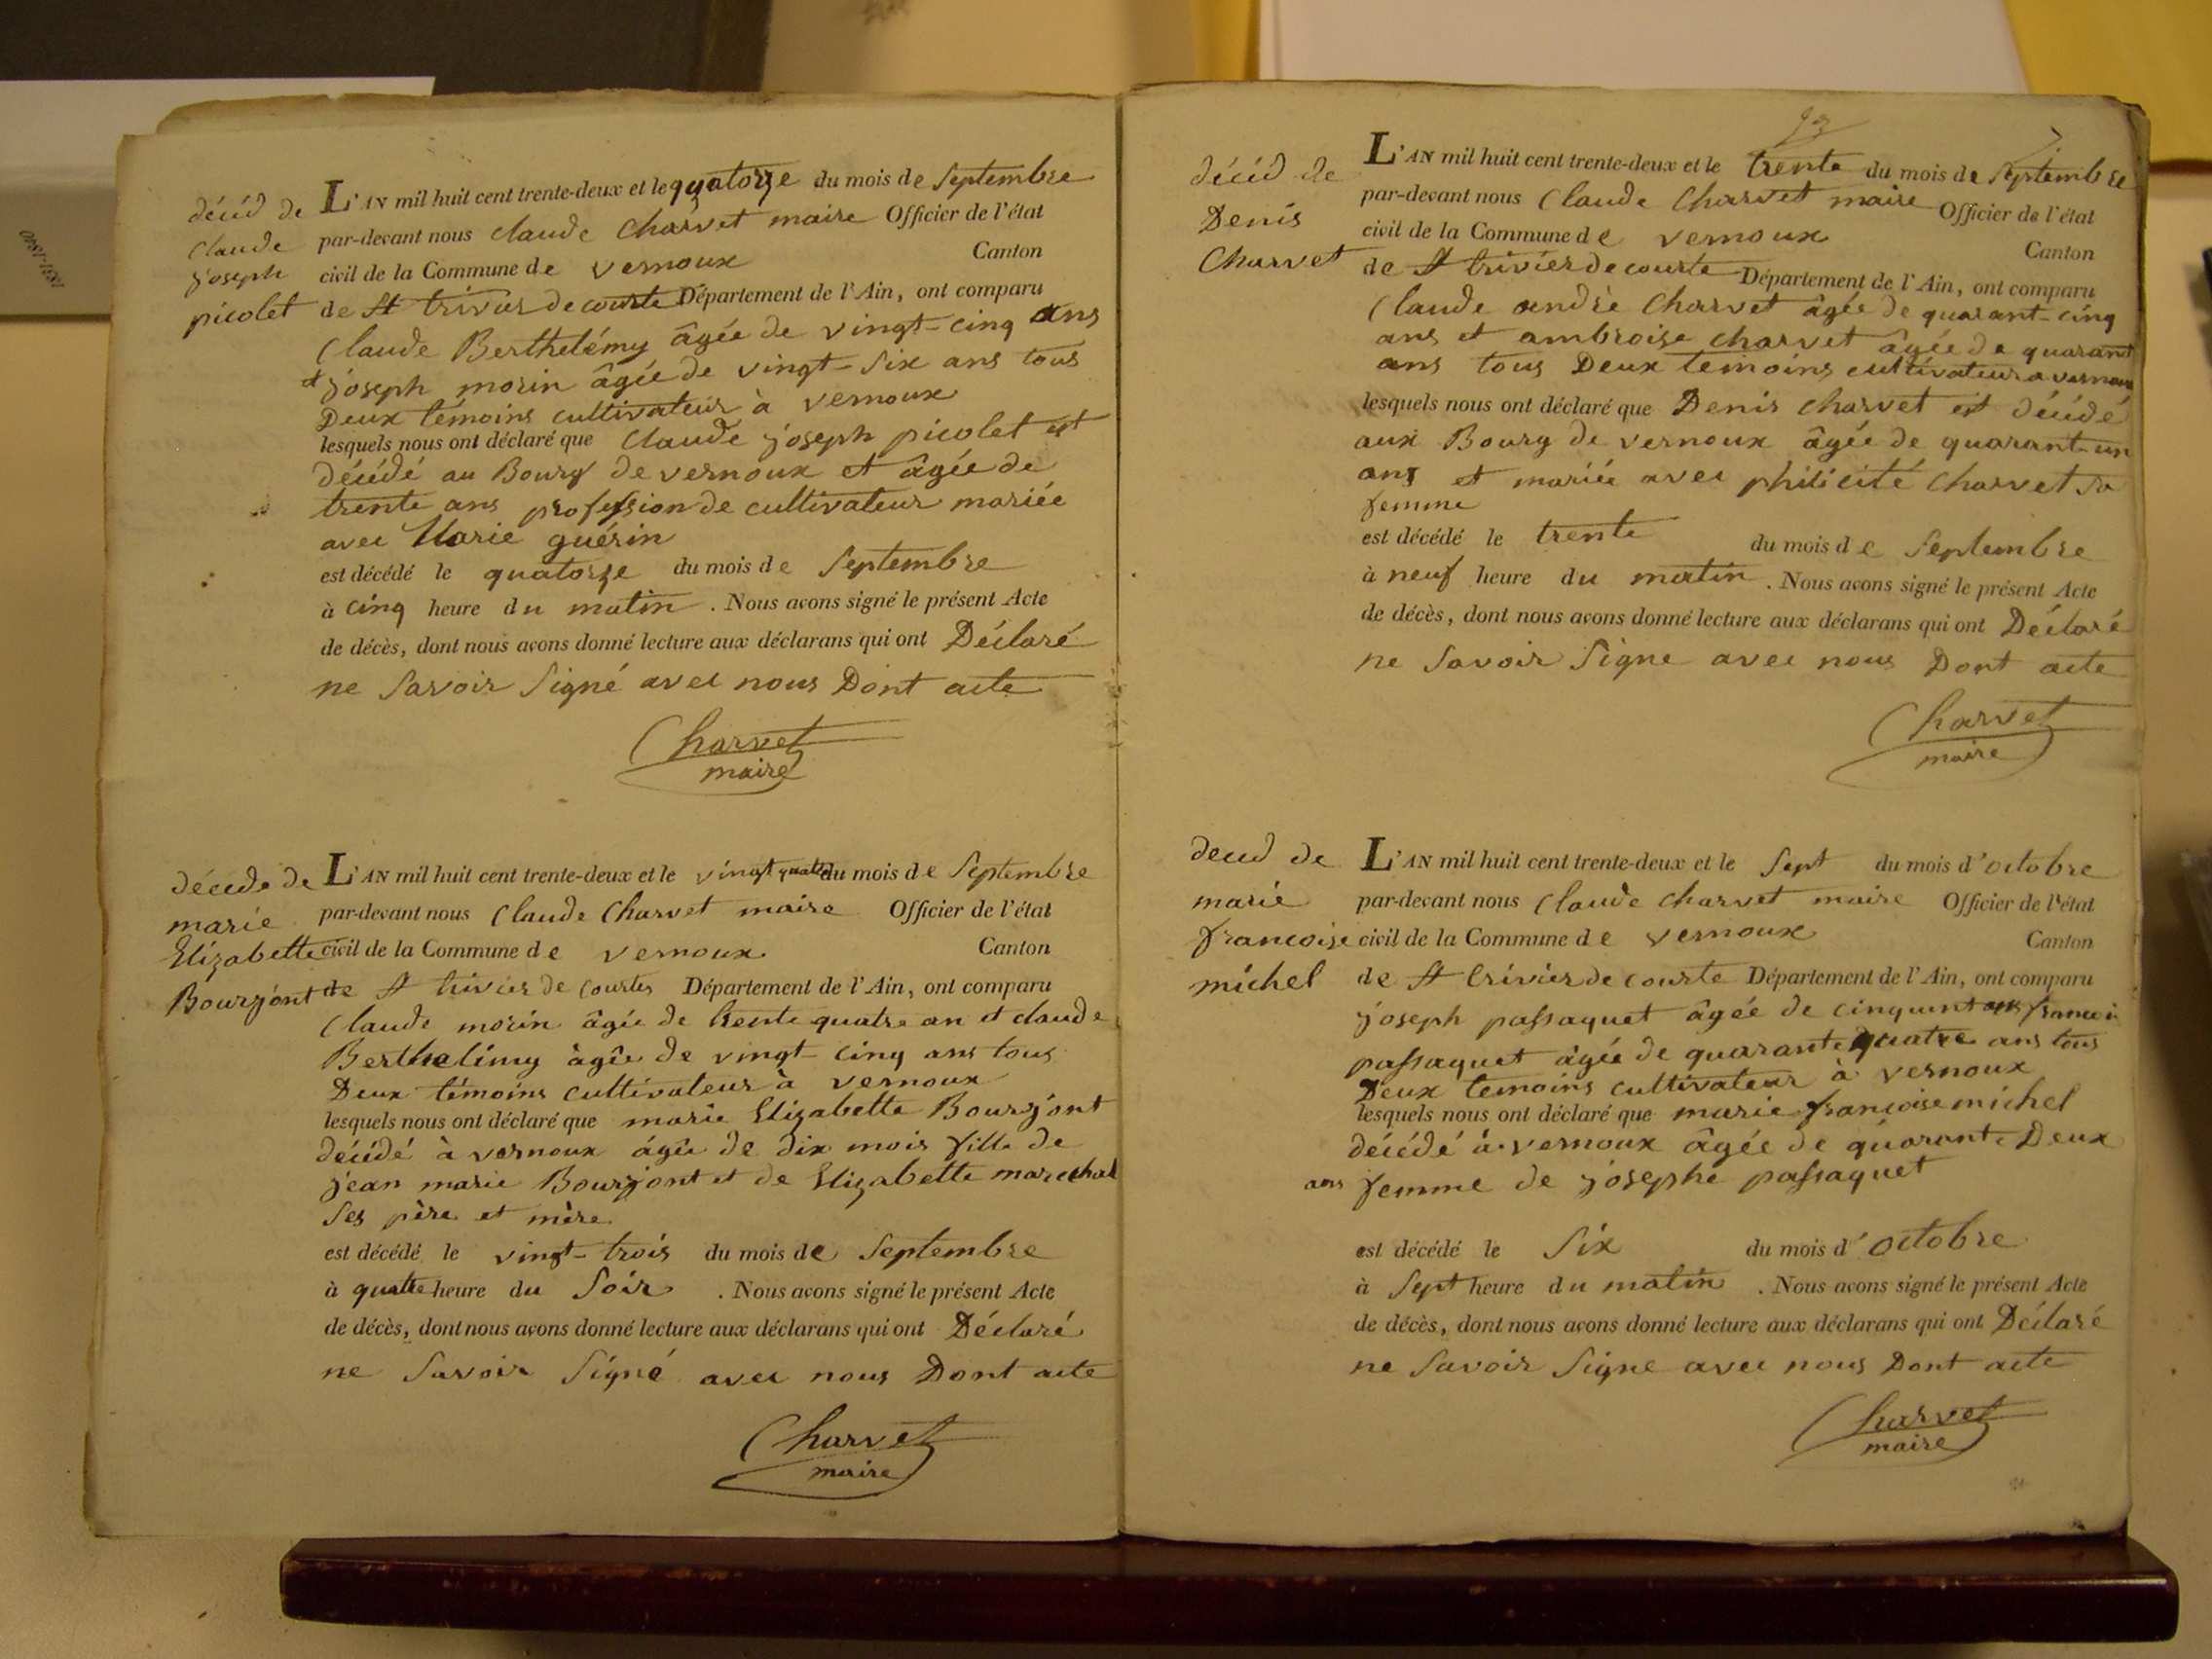 décéd de
Claude
joseph
picolet
L'AN mil huit cent trente-deux et le quatorze du mois de Septembre
par-devant nous claude Charvet maire Officier de l'état
civil de la Commune de vernoux Canton
de St trivier de courte Département de l'Ain, ont comparu
Claude Berthelémy âgée de vingt-cinq ans
et joseph morin âgée de vingt-six ans tous
Deux témoins cultivateur à vernoux
lesquels nous ont déclaré que Claude joseph picolet est
décédé au Bourg de vernoux et âgée de
trente ans profession de cultivateur mariée
avec Marie guérin
est décédé le quatorze du mois de Septembre
à cinq heure du matin. Nous avons signé le présent Acte
de décès, dont nous avons donné lecture aux déclarans qui ont Déclaré
ne Savoir Signé avec nous Dont acte
Charvet
maire
décéde de
marie
Elizabette
Bourgjont
L'AN mil huit cent trente-deux et le vingt quatre du mois de Septembre
par-devant nous Claude Charvet maire Officier de l'état
civil de la Commune de vernoux Canton
de St trivier de courtes Département de l'Ain, ont comparu
Claude morin âgée de trente quatre an et claude
Berthelémy âgée de vingt-cinq ans tous
Deux témoins cultivateur à vernoux
lesquels nous ont déclaré que marie Elizabette Bourgjont
décédé à vernoux âgée de dix mois fille de
jean marie Bourgjont et de Elizabette marechal
Ses père et mère
est décédé le vingt-trois du mois de Septembre
à quatre heure du Soir. Nous avons signé le présent Acte
de décès, dont nous avons donné lecture aux déclarans qui ont Déclaré
ne Savoir Signé avec nous Dont acte
Charvet
maire
décéd de
Denis
Charvet
L'AN mil huit cent trente-deux et le trente du mois de Septembre
par-devant nous Claude Charvet maire Officier de l'état
civil de la Commune de vernoux Canton
de St trivier de courte Département de l'Ain, ont comparu
Claude andré Charvet âgée de quarant-cinq
ans et ambroise charvet âgée de quarant
ans tous Deux temoins cultivateur a vernoux
lesquels nous ont déclaré que Denis charvet est décédé
aux Bourg de vernoux âgée de quarant-un
ans et mariée avec philicité Charvet sa
femme
est décédé le trente du mois de Septembre
à neuf heure du matin. Nous avons signé le présent Acte
de décès, dont nous avons donné lecture aux déclarans qui ont Déclaré
ne Savoir Signe avec nous Dont acte
Charvet
maire
deced de
marie
francoise
michel
L'AN mil huit cent trente-deux et le Sept du mois d'octobre
par-devant nous Claude Charvet maire Officier de l'état
civil de la Commune de vernoux Canton
de St trivier de courte Département de l'Ain, ont comparu
joseph passaquet âgée de cinquant ans francoi
passaquet âgée de quarante quatre ans tous
Deux temoins cultivateur à vernoux
lesquels nous ont déclaré que marie francoise michel
décédé à vernoux âgée de quarante Deux
ans femme de josephe passaquet
est décédé le Six du mois d'octobre
à Sept heure du matin. Nous avons signé le présent Acte
de décès, dont nous avons donné lecture aux déclarans qui ont Déclaré
ne Savoir Signe avec nous Dont acte
Charvet
maire